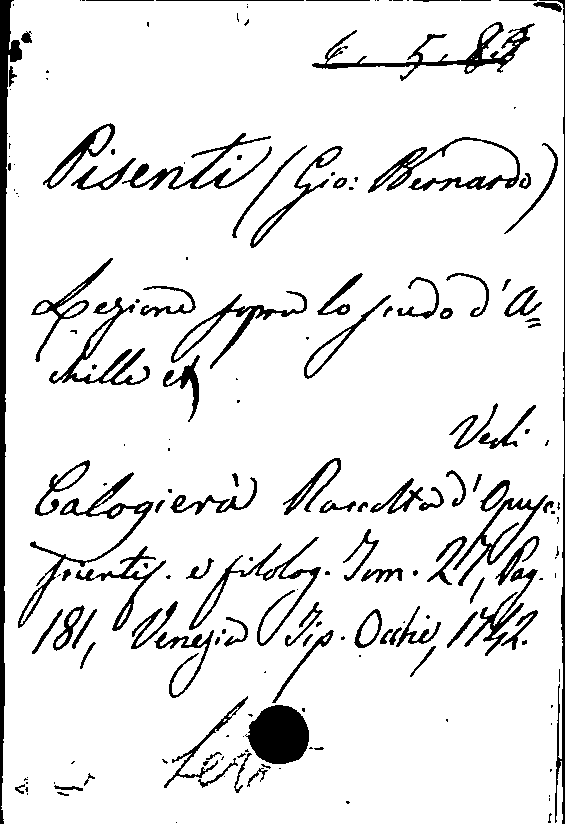 6. 5. 83
Pisenti (Gio: Bernardo)
Lezione sopra lo scudo d'A=
chille et
Vedi
Calogierà Raccolta d'Opusc:
scientif. e filolog. Tom. 27, Pag.
181, Venezia Tip. Occhi, 1742.